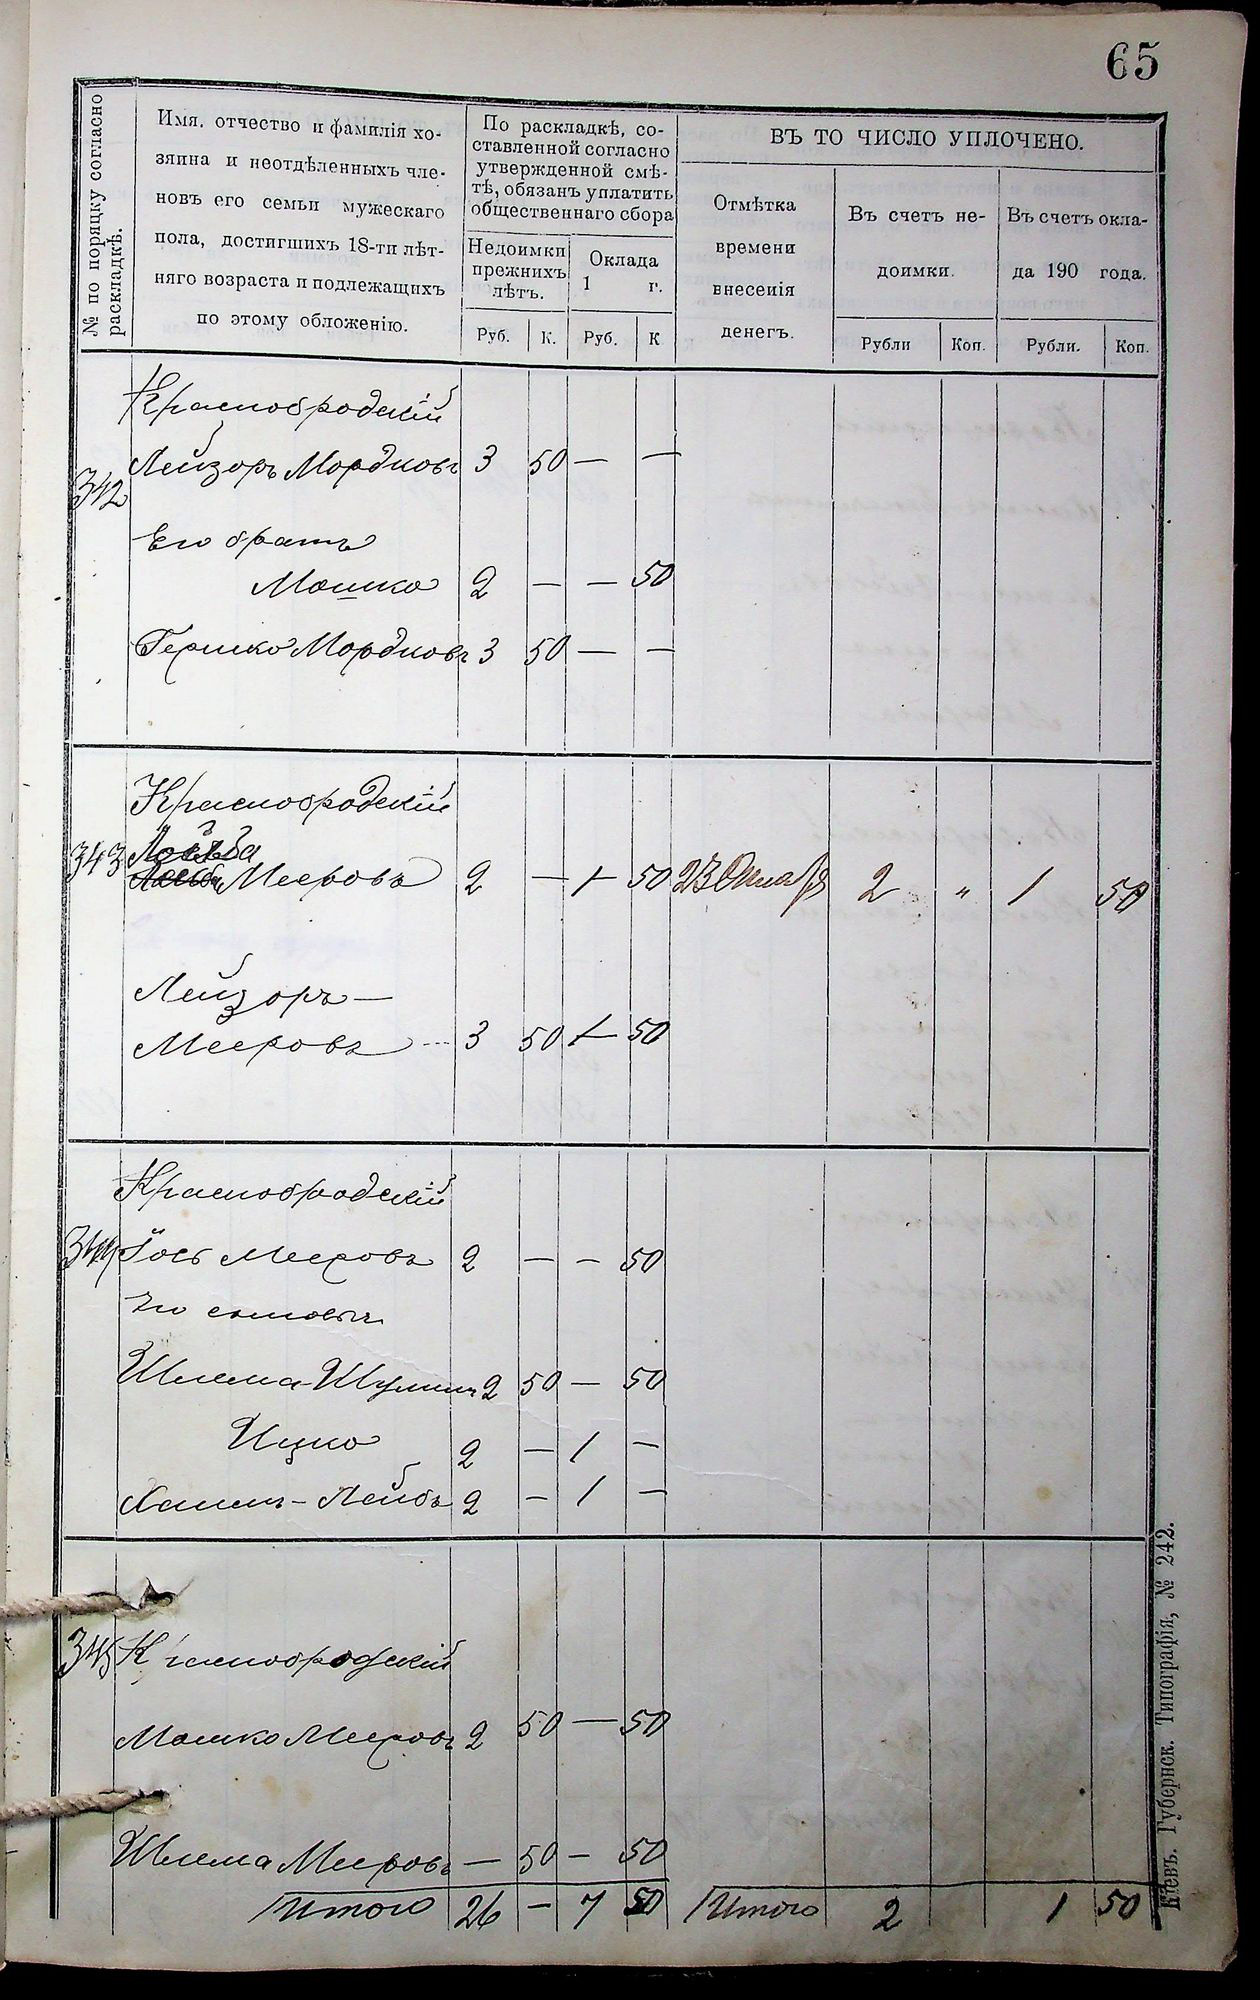 65
№ по порядку согласно
раскладкѣ.
Имя, отчество и фамилія хо-
зяина и неотдѣленныхъ чле-
новъ его семьи мужескаго
пола, достигшихъ 18-ти лѣт-
няго возраста и подлежащихъ
по этому обложенію.
По раскладкѣ, со-
ставленной согласно
утвержденной смѣ-
тѣ, обязанъ уплатить
общественнаго сбора
Недоимки
прежнихъ
лѣтъ.
Оклада
1 г.
Руб. К. Руб. К
ВЪ ТО ЧИСЛО УПЛОЧЕНО.
Отмѣтка
времени
внесенія
денегъ.
Въ счетъ не-
доимки.
Въ счетъ окла-
да 190 года.
Рубли Коп. Рубли. Коп.
Краснобродскій
342 Лейзоръ Мордковъ 3 50 — —
Его братъ
Мошко 2 — — 50
Гершко Мордковъ 3 50 — —
Краснобродскій
343 Мееровъ 2 — 1 50 23 Октября 2 " 1 50
Лейзоръ —
Мееровъ 3 50 1 50
Краснобродскій
344 Іосъ Мееровъ 2 — — 50
Его сыновья
Шлема-Шулимъ 2 50 — 50
Ицко 2 — 1 —
Хаимъ-Лейбъ 2 — 1 —
345 Краснобродскій
Мошко Мееровъ 2 50 — 50
Шлема Мееровъ — 50 — 50
Итого 26 — 7 50 Итого 2 1 50
Кіевъ. Губернск. Типографія, № 242.